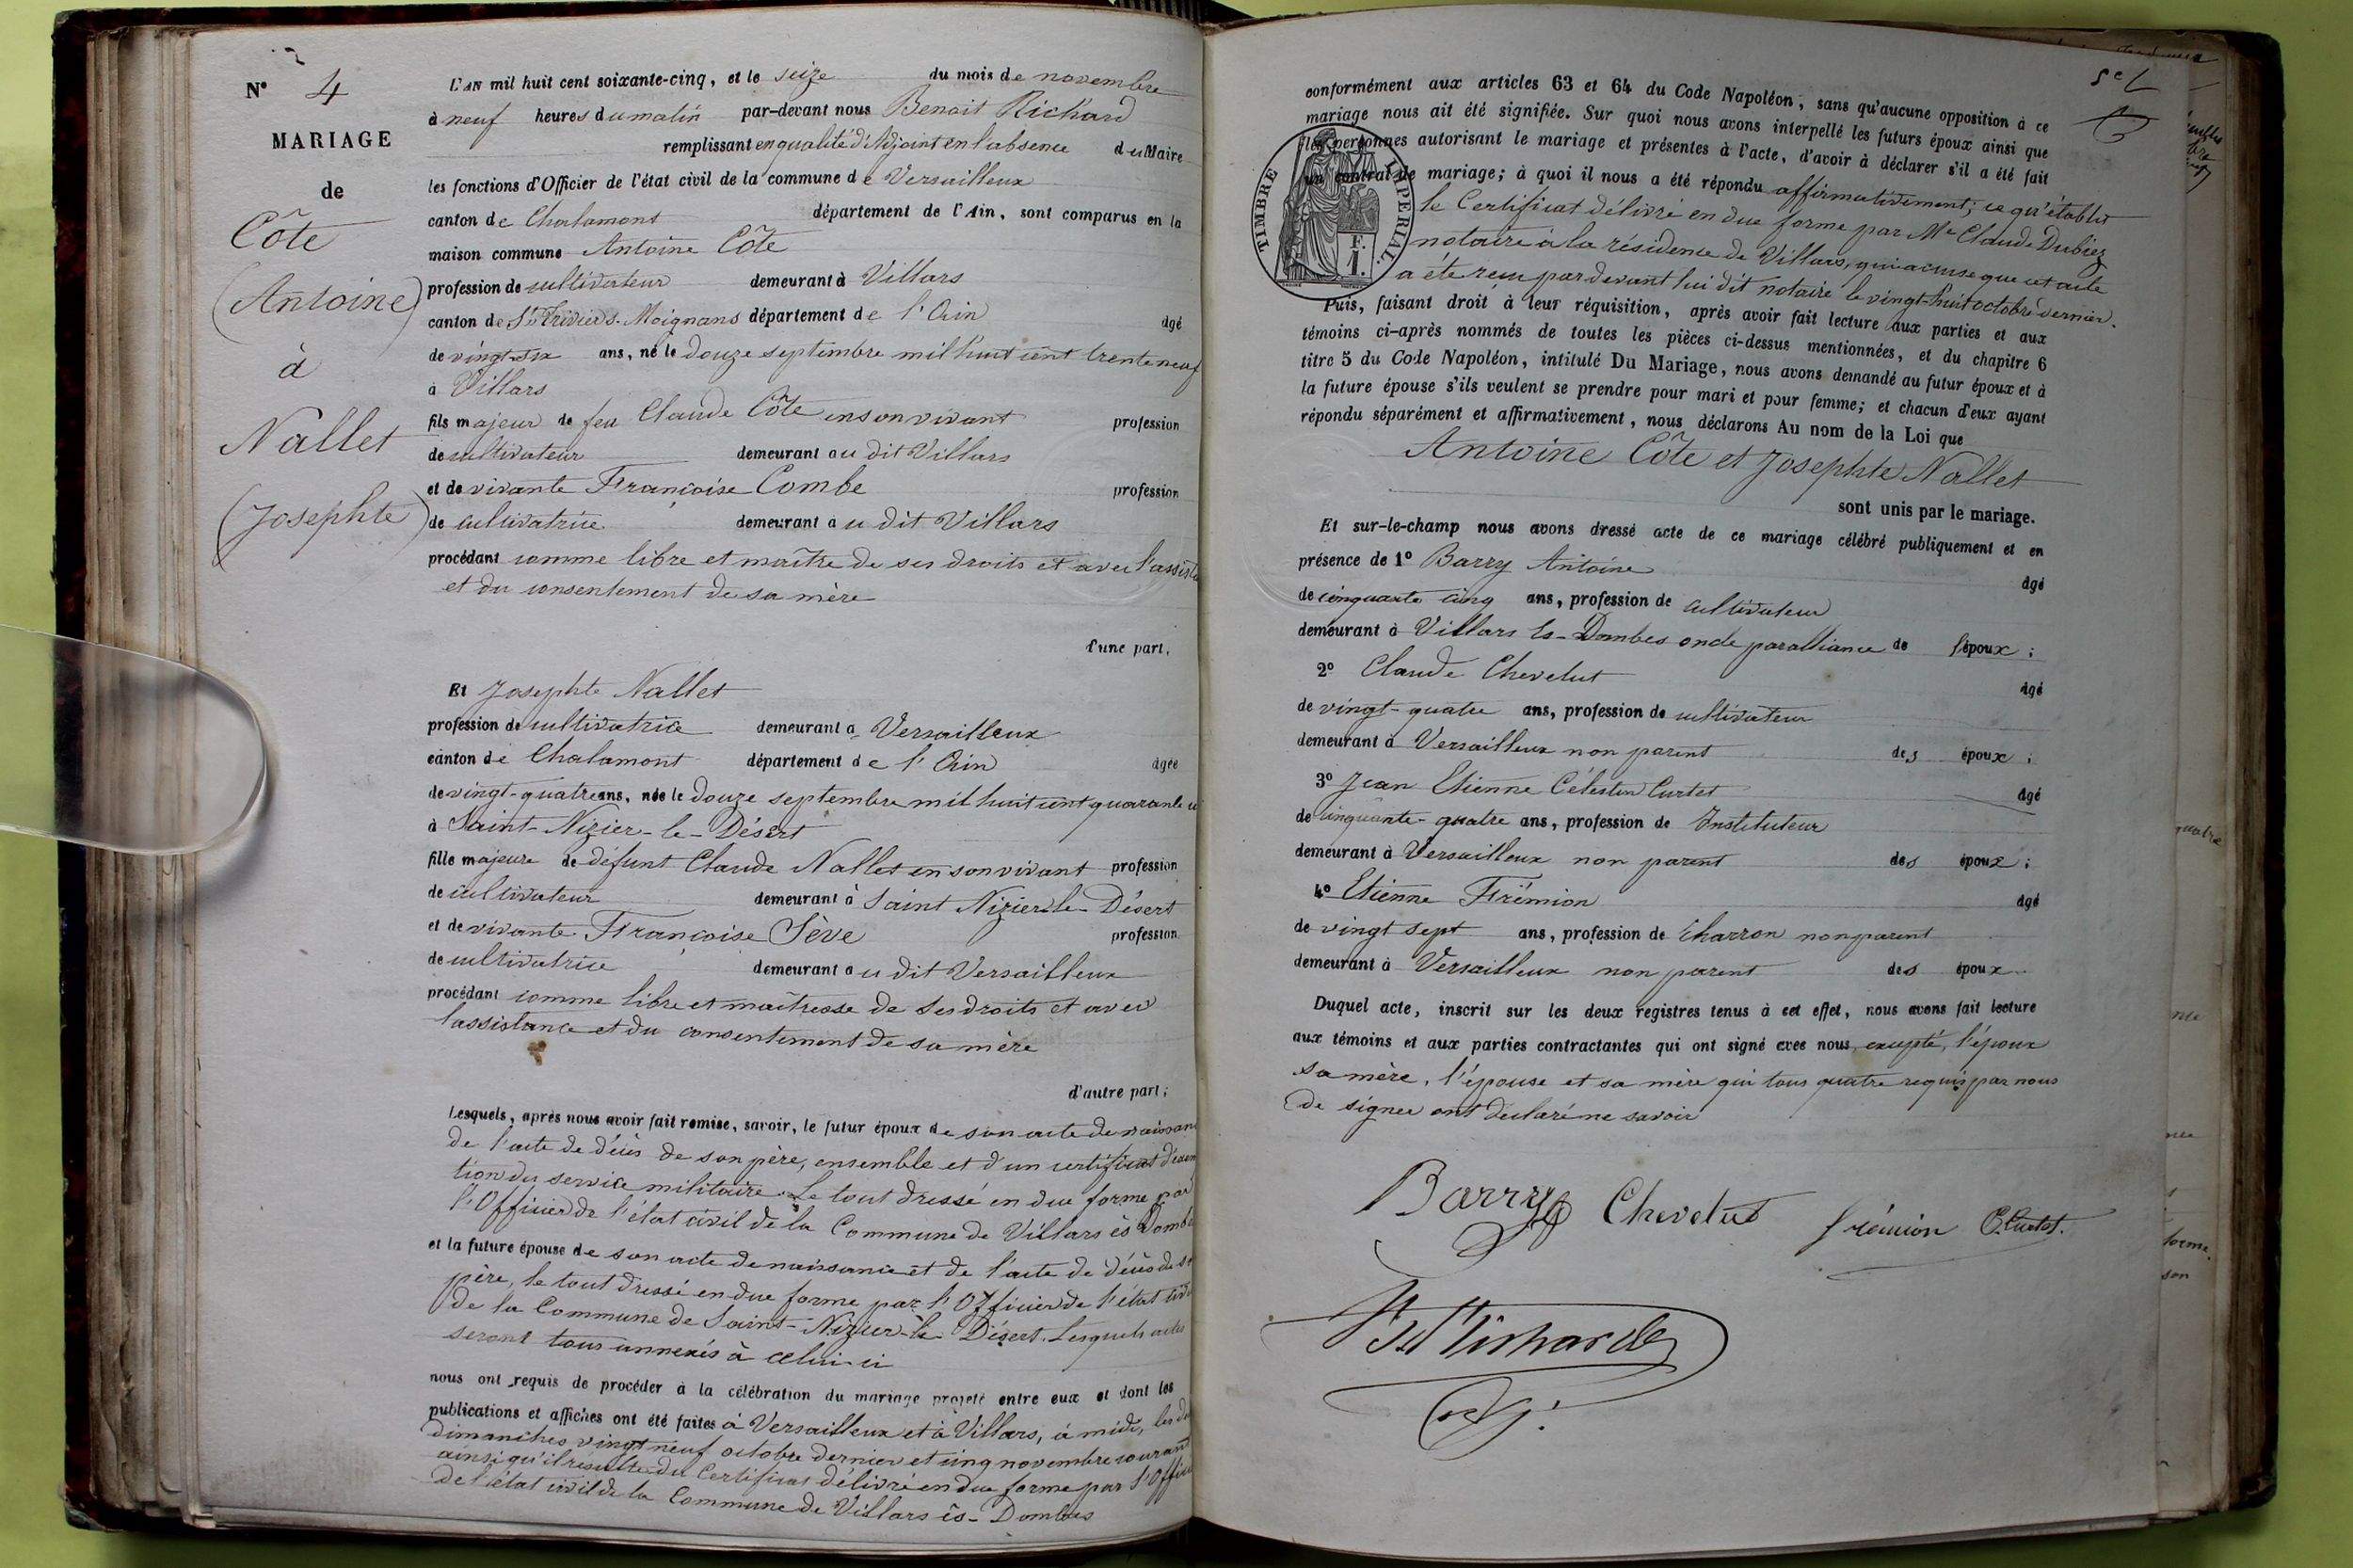 N° 4
MARIAGE
de
Côte
(Antoine)
à
Nallet
(Josephte)
L'AN mil huit cent soixante-cinq, et le seize du mois de novembre
à neuf heures du matin par-devant nous Benoit Richard
remplissant en qualité d'Adjoint en l'absence du Maire
les fonctions d'Officier de l'état civil de la commune de Versailleux
canton de Chalamont département de l'Ain, sont comparus en la
maison commune Antoine Côte
profession de cultivateur demeurant à Villars
canton de St Trivier s. Moignans département de l'Ain âgé
de vingt-six ans, né le douze septembre mil huit cent trente neuf
à Villars
fils majeur de feu Claude Côte en son vivant profession
de cultivateur demeurant au dit Villars
et de vivante Françoise Combe profession
de cultivatrice demeurant au dit Villars
procédant comme libre et maître de ses droits et avec l'assista
et du consentement de sa mère
d'une part,
Et Josephte Nallet
profession de cultivatrice demeurant à Versailleux
canton de Chalamont département de l'Ain âgée
de vingt-quatre ans, née le douze septembre mil huit cent quarante u
à Saint-Nizier-le-Désert
fille majeure de défunt Claude Nallet en son vivant profession
de cultivateur demeurant à Saint Nizier le Désert
et de vivante Françoise Sève profession
de cultivatrice demeurant au dit Versailleux
procédant comme libre et maîtresse de ses droits et avec
l'assistance et du consentement de sa mère
d'autre part;
Lesquels, après nous avoir fait remise, savoir, le futur époux de son acte de naissan
de l'acte de décès de son père, ensemble et d'un certificat d'exem
tion du service militaire. Le tout dressé en due forme par
l'Officier de l'état civil de la Commune de Villars ès Domb
et la future épouse de son acte de naissance et de l'acte de décès de s
père, le tout dressé en due forme par l'Officier de l'état civi
de la Commune de Saint-Nizier-le-Désert. Lesquels actes
seront tous annexés à celui-ci
nous ont requis de procéder à la célébration du mariage projeté entre eux et dont les
publications et affiches ont été faites à Versailleux et à Villars, à midi, les de
dimanches vingt neuf octobre dernier et cinq novembre courant
ainsi qu'il résulte du Certificat délivré en due forme par l'Offici
de l'état civil de la Commune de Villars ès-Dombes
conformément aux articles 63 et 64 du Code Napoléon, sans qu'aucune opposition à ce
mariage nous ait été signifiée. Sur quoi nous avons interpellé les futurs époux ainsi que
les personnes autorisant le mariage et présentes à l'acte, d'avoir à déclarer s'il a été fait
un contrat de mariage; à quoi il nous a été répondu affirmativement; ce qu'établit
le Certificat délivré en due forme par Me Claude Dubiez
notaire à la résidence de Villars, qui accuse que cet acte
a été reçu par devant lui dit notaire le vingt-huit octobre dernier.
TIMBRE IMPERIAL.
F.
1.
Puis, faisant droit à leur réquisition, après avoir fait lecture aux parties et aux
témoins ci-après nommés de toutes les pièces ci-dessus mentionnées, et du chapitre 6
titre 5 du Code Napoléon, intitulé Du Mariage, nous avons demandé au futur époux et à
la future épouse s'ils veulent se prendre pour mari et pour femme; et chacun d'eux ayant
répondu séparément et affirmativement, nous déclarons Au nom de la Loi que
Antoine Côte et Josephte Nallet
sont unis par le mariage.
Et sur-le-champ nous avons dressé acte de ce mariage célébré publiquement et en
présence de 1° Barry Antoine âgé
de cinquante cinq ans, profession de cultivateur
demeurant à Villars Es-Dombes oncle par alliance de l'époux;
2° Claude Chevelut âgé
de vingt-quatre ans, profession de cultivateur
demeurant à Versailleux non parent des époux;
3° Jean Etienne Célestin Curtet âgé
de cinquante-quatre ans, profession de Instituteur
demeurant à Versailleux non parent des époux;
4° Etienne Frémion âgé
de vingt sept ans, profession de Charron non parent
demeurant à Versailleux non parent des époux.
Duquel acte, inscrit sur les deux registres tenus à cet effet, nous avons fait lecture
aux témoins et aux parties contractantes qui ont signé avec nous, excepté, l'époux
sa mère, l'épouse et sa mère qui tous quatre requis par nous
de signer ont déclaré ne savoir
Barry Chevelut frémion C. Curtet.
Bt Richard
adj.